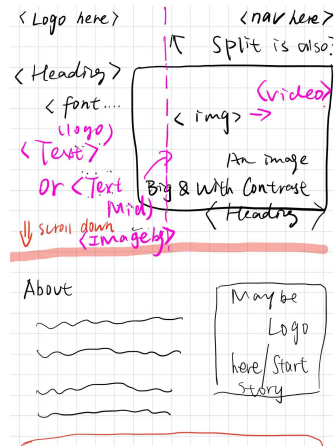 <Logo here>
<nav here>
↑ Split is also:
<Heading>
<font....
(logo)
<Text>
or <Text
Mid)
<Imagebg>
<video>
<img> →
An image
Big & With Contrast
<Heading>
⇓ scroll down
About
Maybe
Logo
here/Start
Story